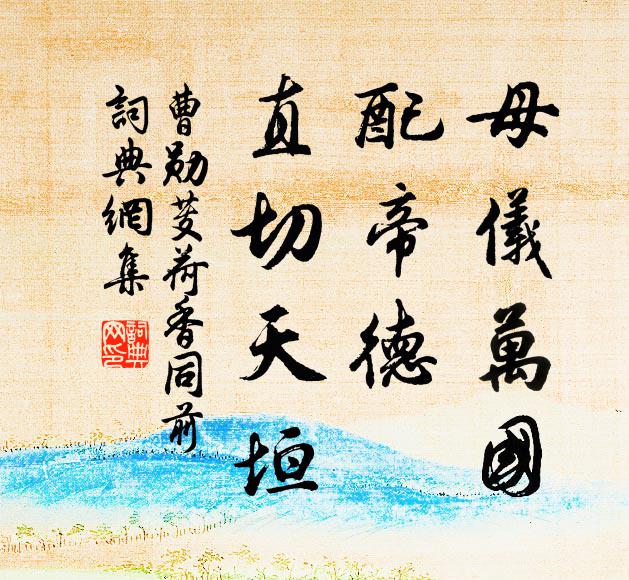 母儀萬國
配帝德
直切天垣
曹勛芰荷香同前
詞典網集
詞典網印